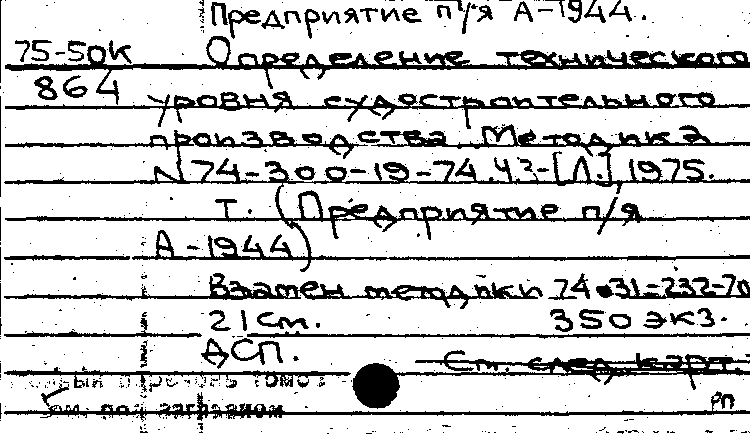 Предприятие п/я А-1944.
75-50к Определение технического
864 уровня судостроительного
производства. Методика
N74-300-19-74. Ч3-[Л.], 1975.
Т. (Предприятие п/я
А-1944)
Взамен методики 74.31-232-70
21 см. 350 экз.
ДСП. См. след. карт.
томов
под заглавием
РП